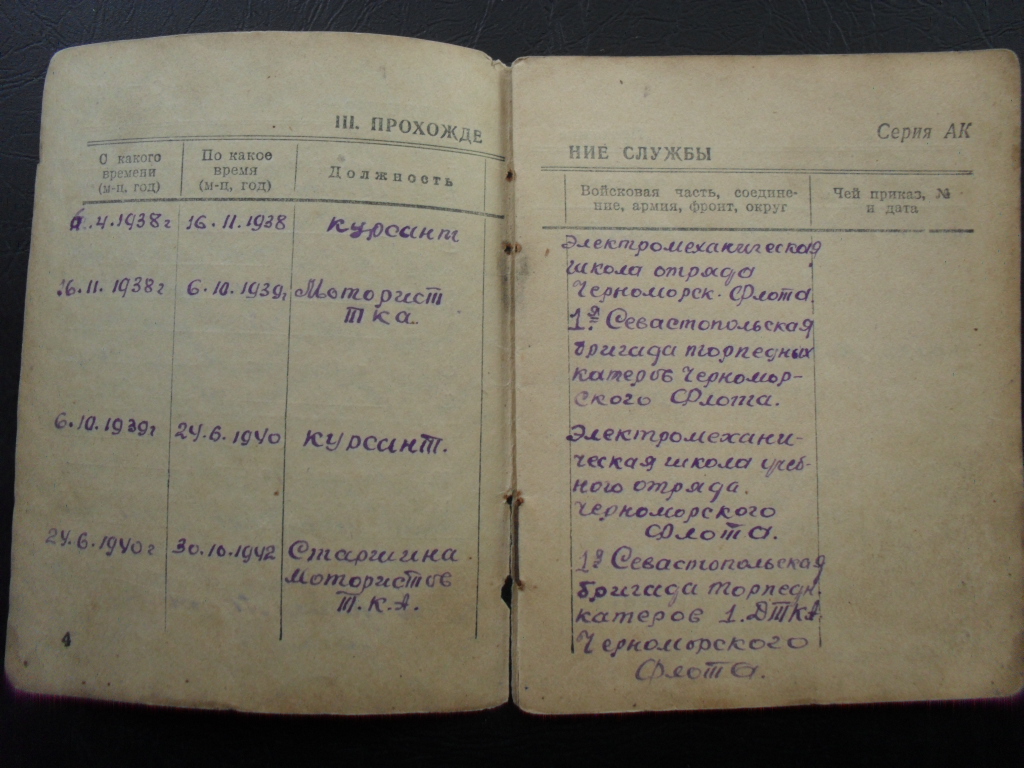 III. ПРОХОЖДЕ
С какого
времени
(м-ц, год)
По какое
время
(м-ц, год)
Должность
4.1938г
16.11.1938
курсант
16.11.1938г
6.10.1939г
Моторист
ТКА.
6.10.1939г
24.6.1940
курсант.
24.6.1940г
30.10.1942
Старшина
Мотористов
Т.К.А.
4
Серия АК
НИЕ СЛУЖБЫ
Войсковая часть, соедине-
ние, армия, фронт, округ
Чей приказ, №
и дата
Электромеханическая
школа отряда
Черноморск. Флота.
1я Севастопольская
бригада торпедных
катеров Черномор-
ского Флота.
Электромехани-
ческая школа учеб-
ного отряда.
Черноморского
Флота.
1я Севастопольская
бригада Торпедн.
катеров 1.ДТКА.
Черноморского
Флота.